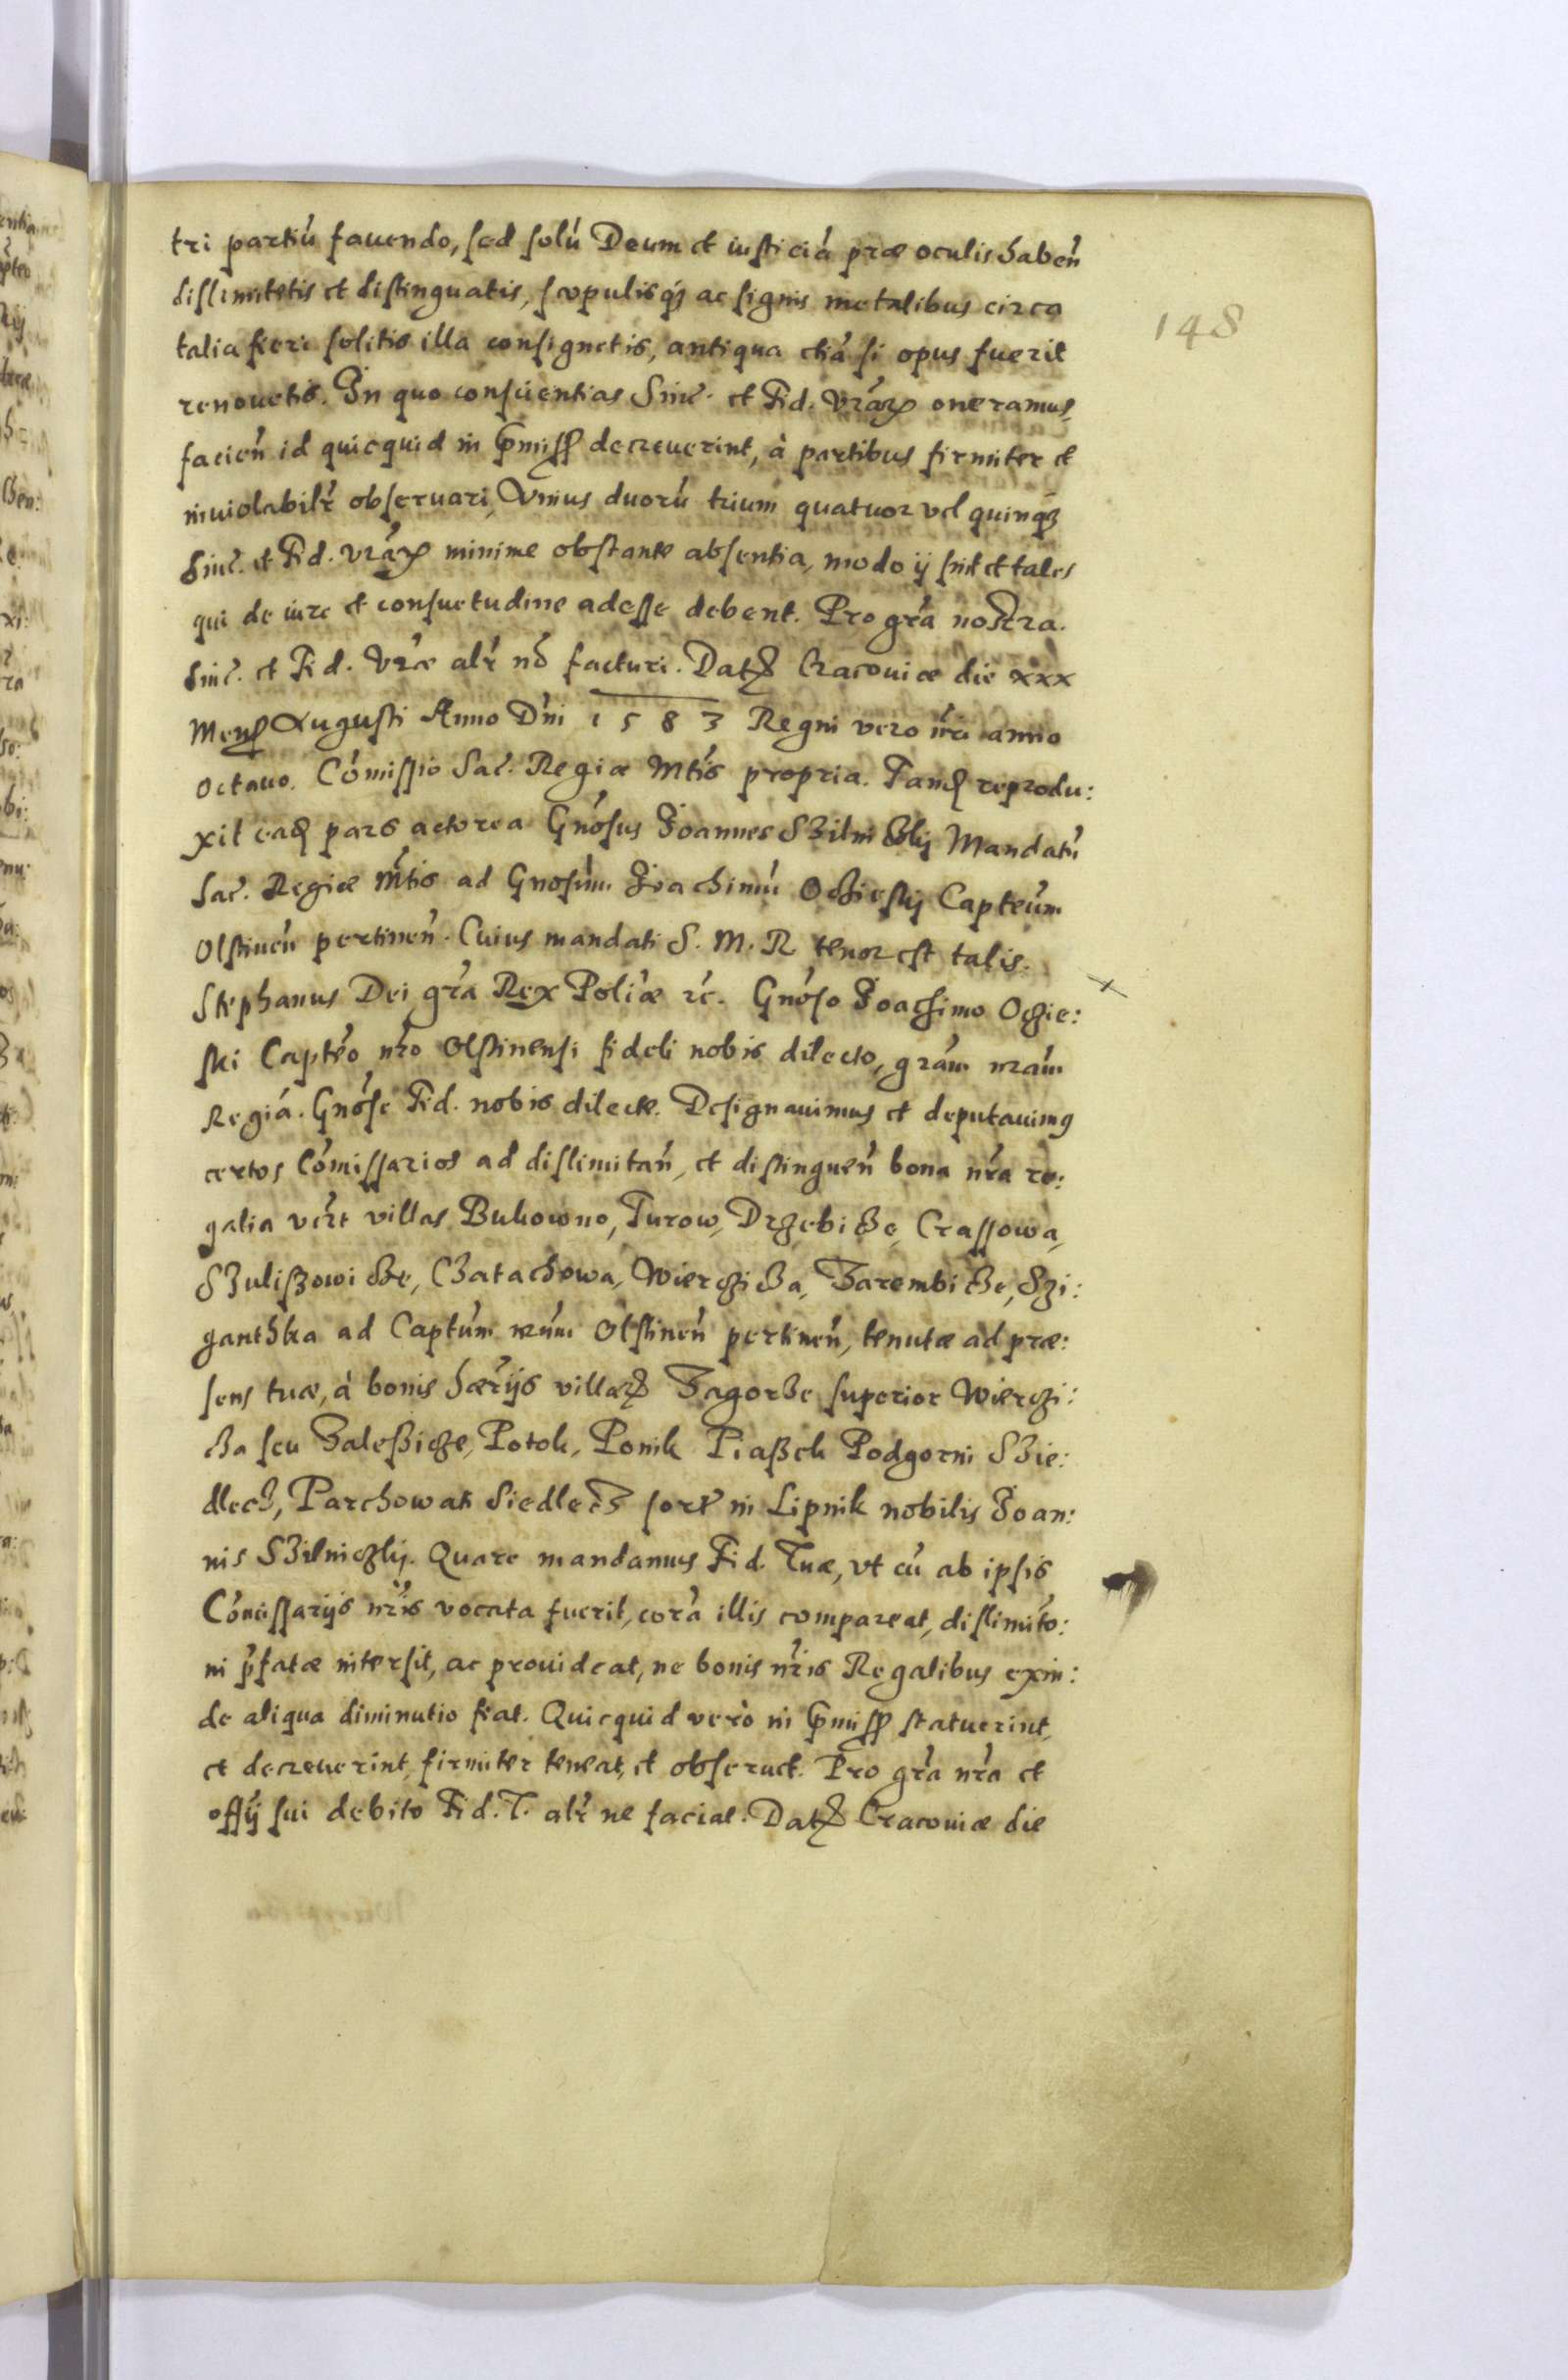 tri partiú favendo, sed solú Deum et iusticiá præ oculis habeń
dislimitetis et distinguatis, scopulisq́ ac signis metalibus circa
148
talia fieri solitis illa consignetis, antiqua etiá si opus fuerit
renovetis. In quo conscientias Sinc. et Fid. Vrarꝝ oneramus,
facień id quicquid in p̃miss decreverint, à partibus firmiter et
inviolabilr̃ observari, Vnius duorú trium quatuor vel quinq́
Sinc. et Fid. vrarꝝ minime obstante absentia, modo ij sint et tales
qui de iure et consuetudine adesse debent. Pro gr̃a nostra.
Sinc. et Fid. Vræ alr̃ nō facturi. Datꝝ Cracoviæ die xxx
Mens Augusti Anno Dńi 1583 Regni vero nr̃i anno
octavo. Cómissio Sac. Regiæ Mt́is propria. Tandē reprodu:
xit eadē pars actorea Gnósus Joannes SZilniczky Mandatú
Sac. Regiæ Mt́is ad Gnosúm Joachimú Oczieskij Capteúm
Olstineń pertineń. Cuius mandati S. M. R tenor est talis.
Stephanus Dei gr̃a Rex Poliæ rc̃. Gnóso Joachimo Oczie:
ski Captéo nr̃o Olstinensi fideli nobis dilecto, grám nrám
Regiá. Gnóse Fid. nobis dilecte. Designavimus et deputavimꝰ
certos Cómissarios ad dislimitań, et distingueń bona nr̃a re:
galia vert̃ villas Bukowno, Turow, Drzebicze, Crassowa,
SZuliszowicze, Czatachowa, Wierczicza, Zarembicze, Szi:
ganthka ad Captúm nrúm Olstineń pertineń, tenutæ ad præ:
sens tuæ, à bonis hær̃ijs villarꝝ Zagorze superior Wierczi:
cza seu Zaleszicze, Potok, Ponik Piaszek Podgorni SZie:
dlecz, Parchowati Siedlecz sort̃ in Lipnik nobilis Joan:
nis SZilniczky. Quare mandamus Fid. Tuæ, vt cú ab ipsis
Cómissarijs nr̃is vocata fuerit, corá illis compareat, dislimitó:
ni p̃fatæ intersit, ac provideat, ne bonis nr̃is Regalibus exin:
de aliqua diminutio fiat. Quicquid verò in p̃miss statuerint,
et decreverint, firmiter teneat, et observet. Pro gr̃a nr̃a et
offij sui debito Fid. T. alr̃ ne faciat. Datꝝ Cracoviæ die